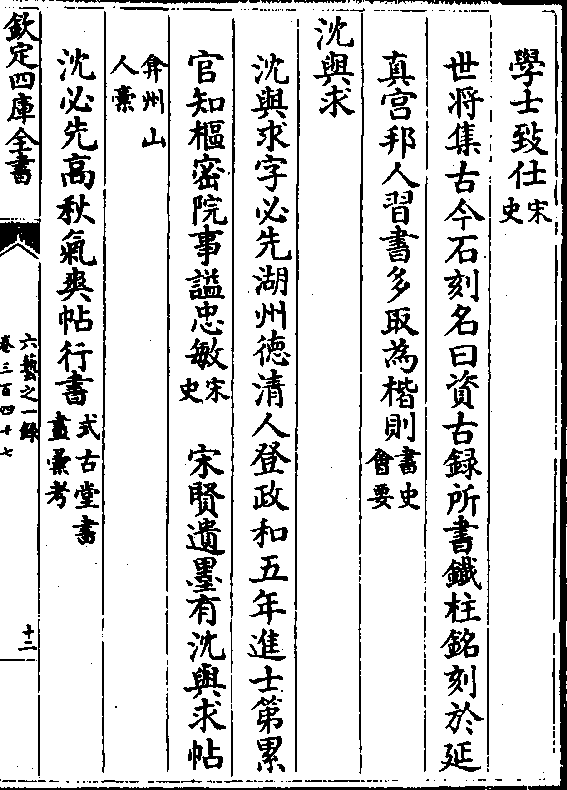 學士致仕宋史
世將集古今石刻名曰資古録所書鐵柱銘刻於延
真宮邦人習書多取為楷則書史會要
沈與求
沈與求字必先湖州德清人登政和五年進士第累
官知樞密院事謚忠敏宋史　宋賢遺墨有沈與求帖
弇州山人稾
沈必先高秋氣爽帖行書式古堂書畫彚考
欽定四庫全書
六藝之一録
卷三百四十七
十二